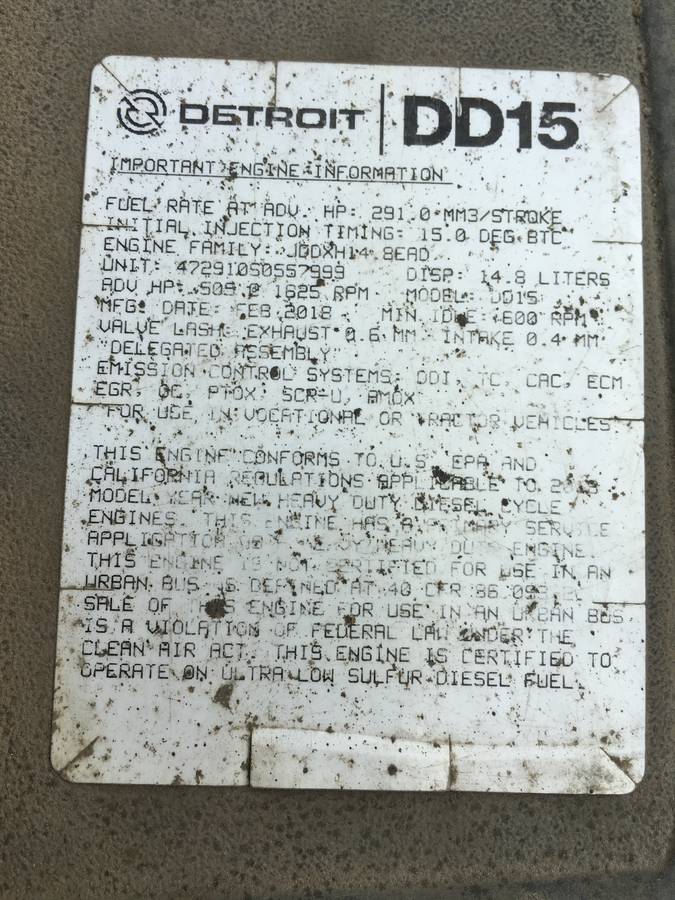 DETROIT DD15
IMPORTANT ENGINE INFORMATION
FUEL RATE AT ADV. HP: 291.0 MM3/STROKE
INITIAL INJECTION TIMING: 15.0 DEG BTC
ENGINE FAMILY: JDDXH14.8EAD
UNIT: 472910S0557999 DISP: 14.8 LITERS
ADV HP: 505 @ 1625 RPM MODEL: DD15
MFG. DATE: FEB 2018 MIN IDLE: 600 RPM
VALVE LASH: EXHAUST 0.6 MM INTAKE 0.4 MM
DELEGATED ASSEMBLY
EMISSION CONTROL SYSTEMS: DDI, TC, CAC, ECM
EGR, OC, PTOX, SCR-U, AMOX
FOR USE IN VOCATIONAL OR TRACTOR VEHICLES
THIS ENGINE CONFORMS TO U.S. EPA AND
CALIFORNIA REGULATIONS APPLICABLE TO
MODEL YEAR NEW HEAVY DUTY DIESEL CYCLE
ENGINES. THIS ENGINE HAS A PRIMARY SERVICE
APPLICATION HEAVY HEAVY DUTY ENGINE
THIS ENGINE IS NOT CERTIFIED FOR USE IN AN
URBAN BUS AS DEFINED AT 40 CFR
SALE OF THIS ENGINE FOR USE IN AN URBAN BUS
IS A VIOLATION OF FEDERAL LAW UNDER THE
CLEAN AIR ACT. THIS ENGINE IS CERTIFIED TO
OPERATE ON ULTRA LOW SULFUR DIESEL FUEL.